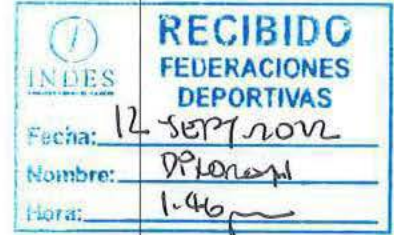 RECIBIDO
INDES
FEDERACIONES
DEPORTIVAS
Fecha: 12 SEPT 2022
Nombre:
Hora: 1:46 pm